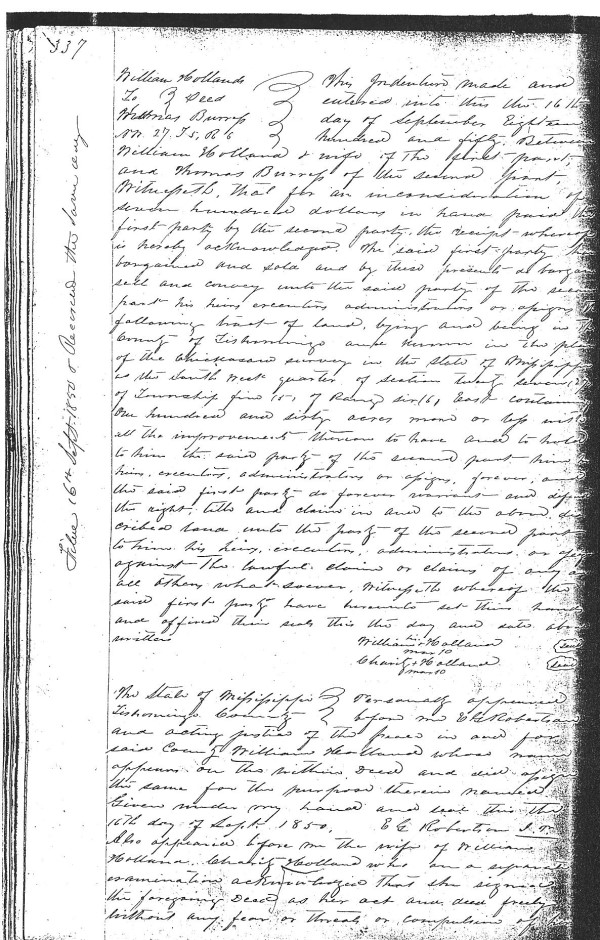 337
William Hollands
To } Deed
Thomas Burress
27. T5, R6
This Indenture made and
entered into this the 16th
day of September Eighteen
hundred and fifty. Between
William Holland & wife of the first part,
and Thomas Burress of the second part,
Witnesseth, that for an inconsideration of
seven hundred dollars in hand paid the
first party by the second party, the receipt whereof
is hereby acknowledged. The said first party
bargained and sold and by these presents do bargain
sell and convey unto the said party of the second
part his heirs executors administrators or assigns the
following tract of land, lying and being in the
County of Tishomingo and known in the plan
of the Chickasaw survey in the State of Mississippi
as the South West quarter of section twenty seven (27)
of Township five (5), of Range six (6) East containing
One hundred and sixty acres more or less with
all the improvements thereon to have and to hold
to him the said party of the second part him
heirs, executors, administrators or assigns, forever, and
the said first party do forever warrant and defend
the right, title and claim in and to the above des
cribed land unto the party of the second part
to him his heirs, executors, administrators or assigns
against the lawful claim or claims of any
all others whatsoever. Witnesseth whereof the
said first party have hereunto set their hand
and affixed their seals this the day and date above
written
William his + Holland
mark
Charity + Holland
mark
The State of Mississippi } Personally appeared
Tishomingo County } before me E C Robertson
and acting justice of the peace in and for
said County William Holland whose name
appears on the within Deed and did assign
the same for the purpose therein named
Given under my hand and seal this the
16th day of Sept. 1850. E C Robertson J.P.
Also appeared before me the wife of William
Holland. Charity Holland who on a separate
examination acknowledged that she signed
the foregoing Deed as her act and deed freely
without any fear or threats or compulsion of
Filed 16th Sept. 1850 & Recorded the same day